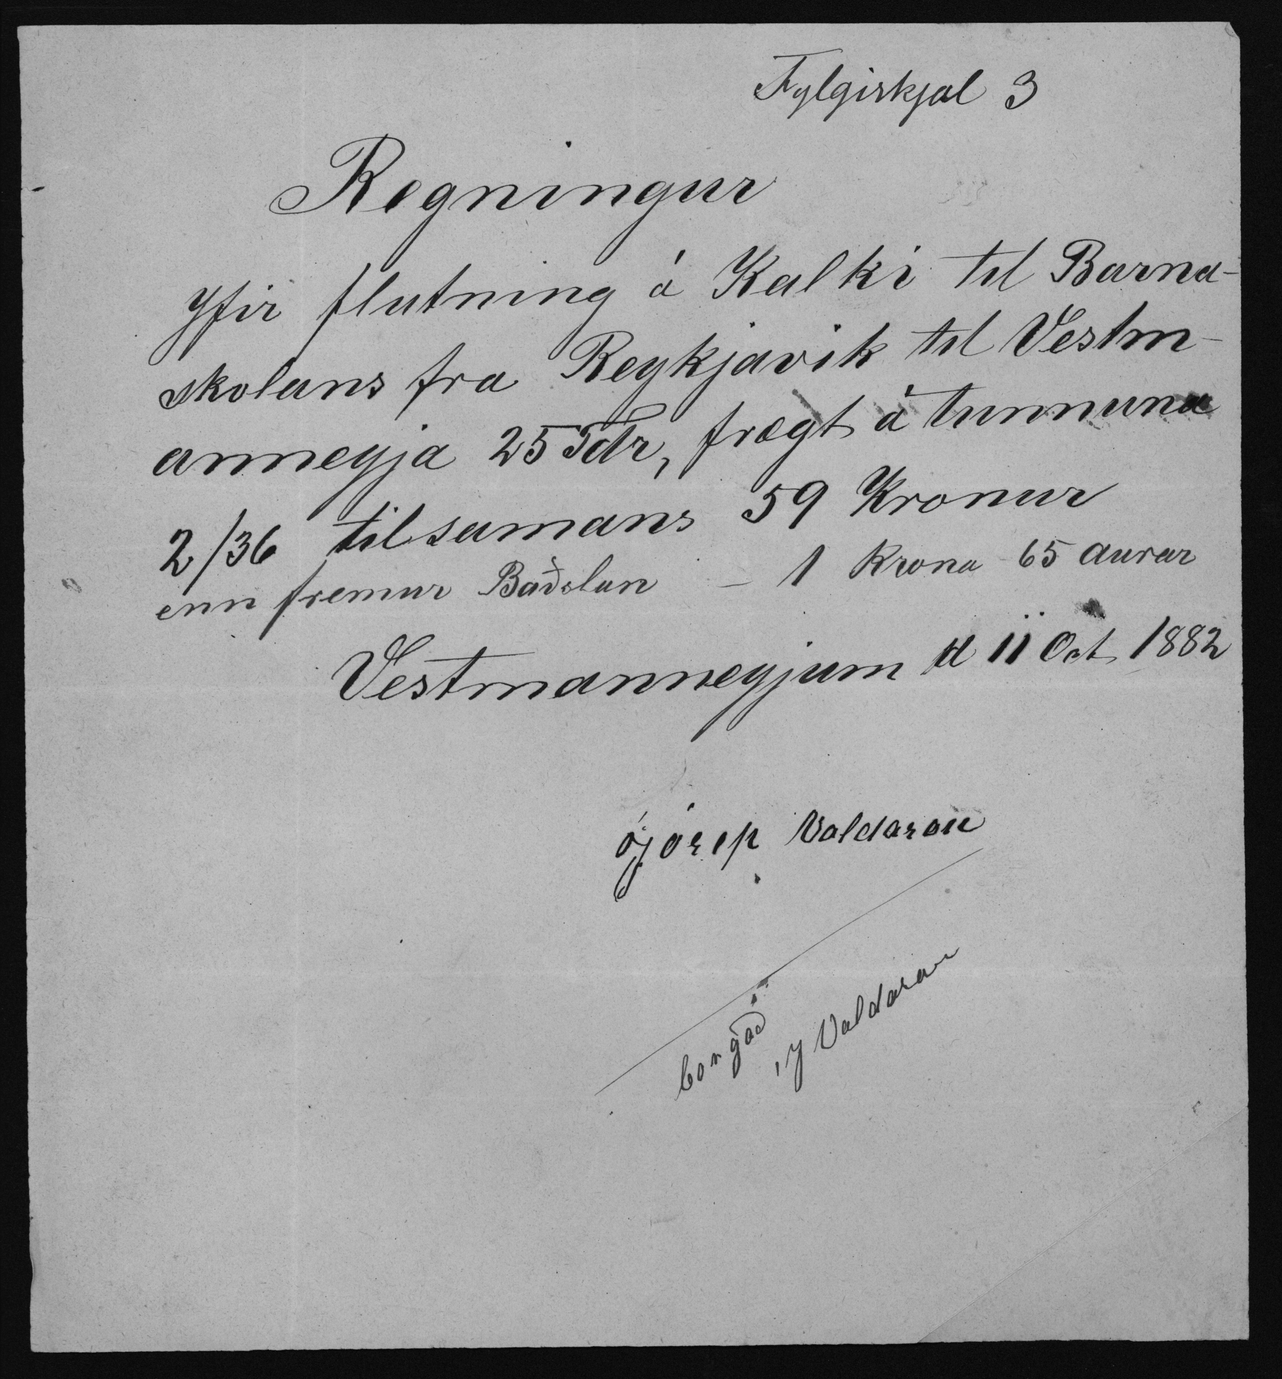 Fylgiskjal 3
Regningur
Yfir flutning á Kalki til Barna-
skolans fra Reykjavik til Vestm-
anneyja 25 Tdr, frægt á tunnuna
2/36 tilsamans 59 Kronur
enn fremur Baðslan – 1 Krona 65 aurar
Vestmanneyjum d 11 Oct 1882
Jósep Valdason
borgað
J Valdason